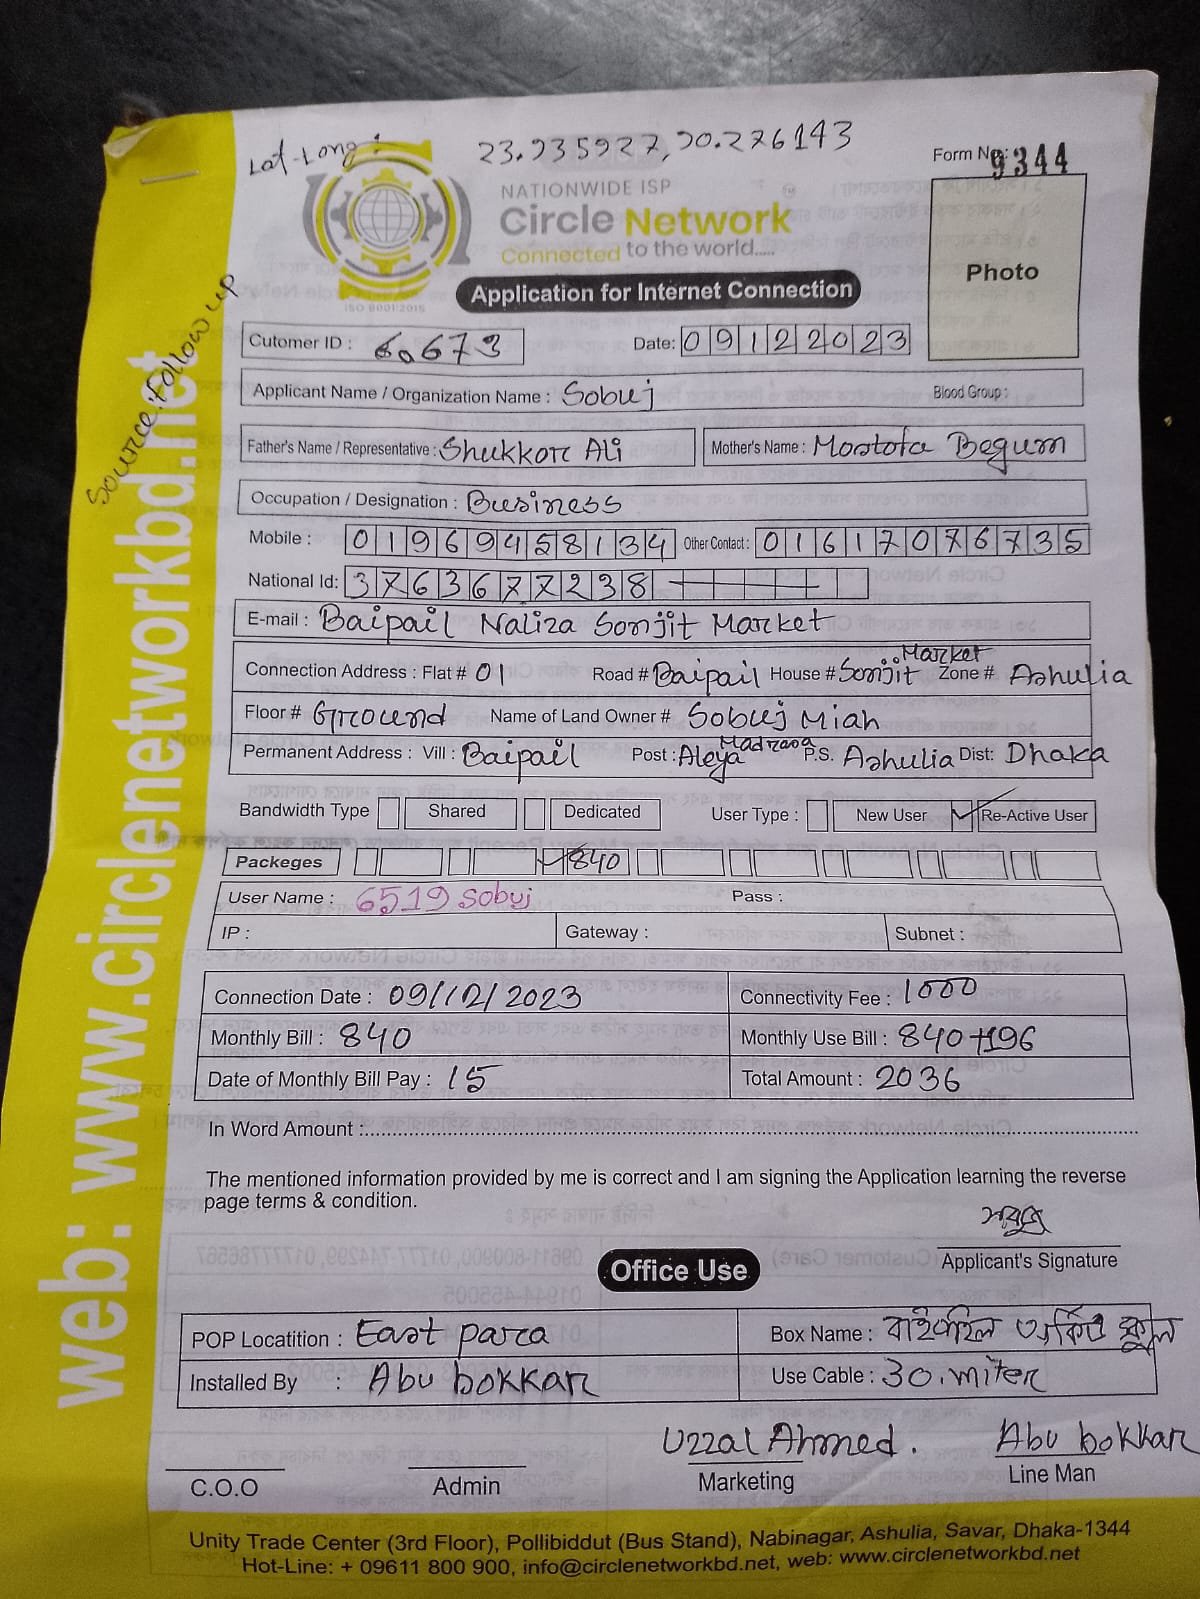 Lat-Long: 23.935927, 90.276143
Form No: 9344
NATIONWIDE ISP
Circle Network
Connected to the world.....
ISO 9001:2015
Photo
Application for Internet Connection
Source: Follow up
Cutomer ID : 60673 Date: 09122023
Applicant Name / Organization Name : Sobuj Blood Group :
Father's Name / Representative : Shukkor Ali Mother's Name : Mostofa Begum
Occupation / Designation : Business
Mobile : 01969458134 Other Contact : 01617076735
National Id: 3763677238
E-mail : Baipail Naliza Sonjit Market
Connection Address : Flat # 01 Road # Baipail House # Sonjit Market Zone # Ashulia
Floor # Ground Name of Land Owner # Sobuj Miah
Permanent Address : Vill : Baipail Post : Aleya Madrasa P.S. Ashulia Dist: Dhaka
Bandwidth Type Shared Dedicated User Type : New User Re-Active User
Packeges 840
User Name : 6519 sobuj Pass :
IP : Gateway : Subnet :
Connection Date : 09/12/2023 Connectivity Fee : 1000
Monthly Bill : 840 Monthly Use Bill : 840+196
Date of Monthly Bill Pay : 15 Total Amount : 2036
In Word Amount :
The mentioned information provided by me is correct and I am signing the Application learning the reverse
page terms & condition.
সবুজ
Applicant's Signature
Office Use
POP Locatition : East para Box Name : বাইপাইল স্কুল
Installed By : Abu bokkar Use Cable : 30.miter
Uzzal Ahmed. Abu bokkar
C.O.O Admin Marketing Line Man
Unity Trade Center (3rd Floor), Pollibiddut (Bus Stand), Nabinagar, Ashulia, Savar, Dhaka-1344
Hot-Line: + 09611 800 900, info@circlenetworkbd.net, web: www.circlenetworkbd.net
web: www.circlenetworkbd.net